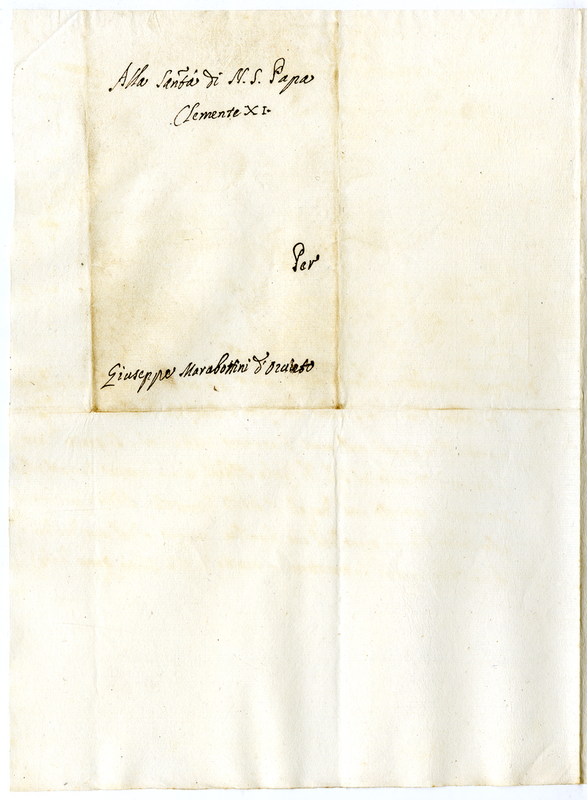 Alla Santà di N. S. Papa
Clemente XI.
Per
Giuseppe Marabottini d'Orvieto